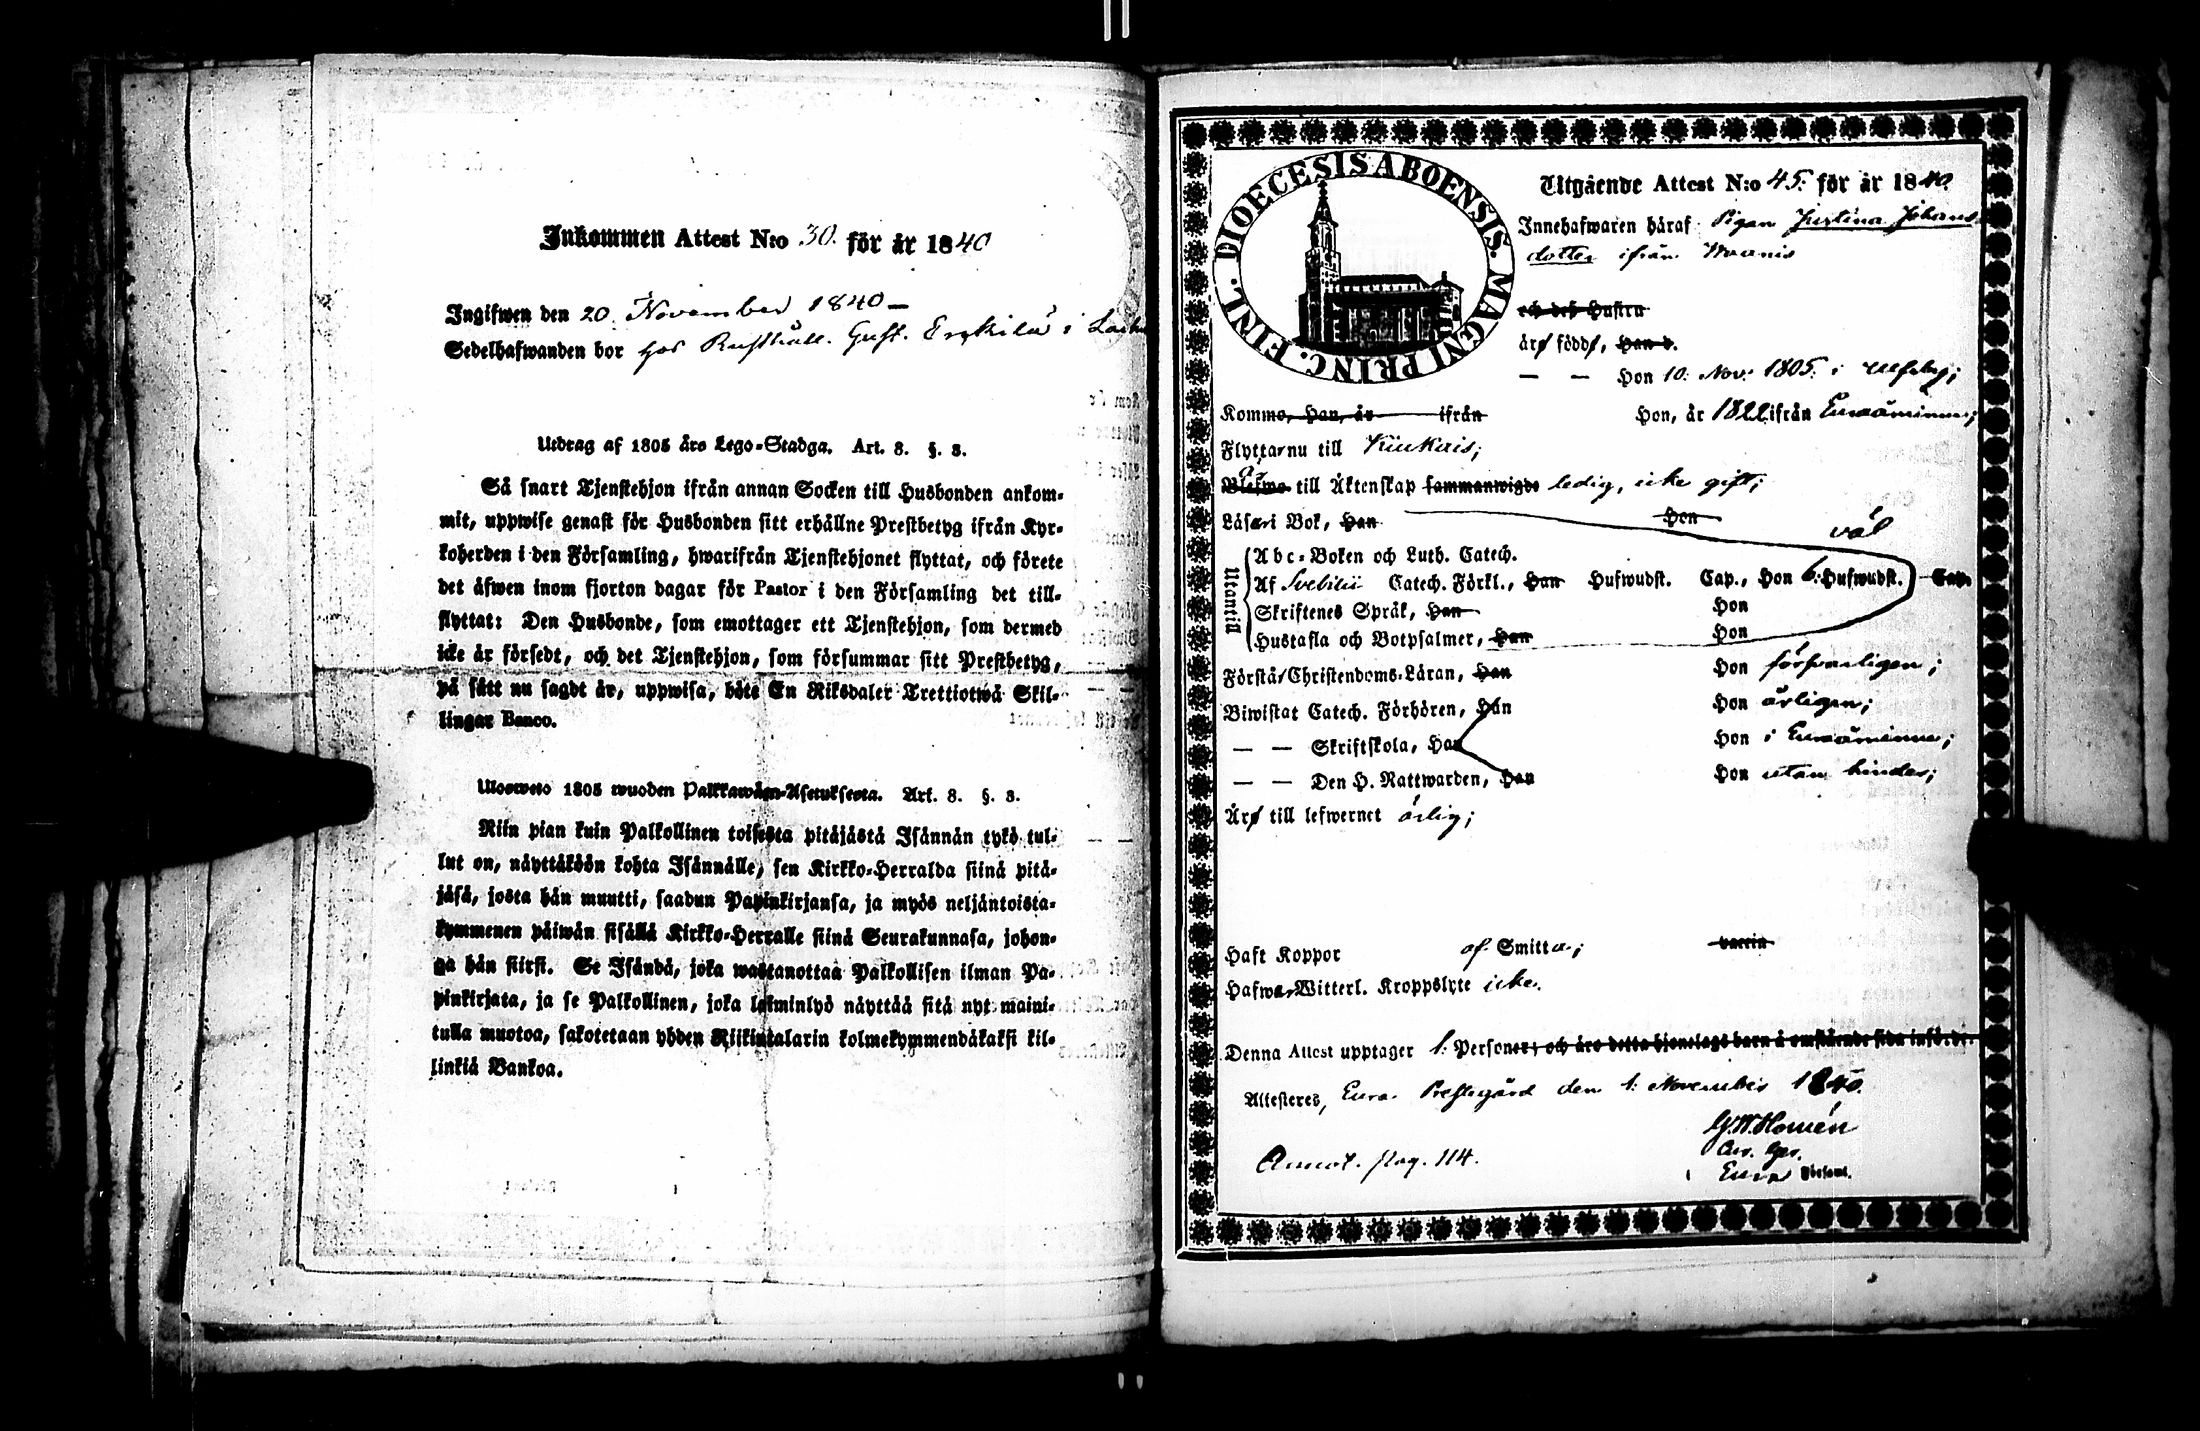 Inkommen Attest N:o 30. för år 1840
Ingifwen den 20. November 1840 –
Sedelhafwanden bor hos Rusthåll. Gust. Erkkilä i
Utdrag af 1805 års Lego-Stadga. Art. 8. §. 3.
Så snart Tjenstehjon ifrån annan Socken till Husbonden ankom-
mit, uppwise genast för Husbonden sitt erhållne Prestbetyg ifrån Kyr-
koherden i den Församling, hwarifrån Tjenstehjonet flyttat, och förete
det äfwen inom fjorton dagar för Pastor i den Församling det till-
flyttat: Den Husbonde, som emottager ett Tjenstehjon, som dermed
icke är försedt, och det Tjenstehjon, som försummar sitt Prestbetyg,
på sätt nu sagdt är, uppwisa, böte En Riksdaler Trettiotwå Skil-
lingar Banco.
Uloswets 1805 wuoden Palkkawäen-Asetuksesta. Art. 8. §. 3.
Niin pian kuin Palkollinen toisesta pitäjästä Isännän tykö tul-
lut on, näyttäköön kohta Isännälle, sen Kirkko-Herralda siinä pitä-
jäsä, josta hän muutti, saadun Papinkirjansa, ja myös neljäntoista-
kymmenen päiwän sisällä Kirkko-Herralle siinä Seurakunnasa, johon-
ga hän siirsi. Se Isändä, joka wastanottaa Palkollisen ilman Pa-
pinkirjata, ja se Palkollinen, joka laiminlyö näyttää sitä nyt maini-
tulla muotoa, sakotetaan yhden Riikintalarin kolmekymmendäkaksi kil-
linkiä Bankoa.
DIOECESIS ABOENSIS. MAGNI PRINC. FINL.
Utgående Attest N:o 45. för år 1840.
Innehafwaren häraf Pigan Justina Johans-
dotter ifrån Woanis
och deß Hustru
äro född, Han d.
— — Hon 10. Nov. 1805. i Ulfsby;
Komme, Han, år ifrån Hon, år 1822 ifrån Euraåminne;
Flyttar nu till Kiukais;
Blefwo till Äktenskap sammanwigde ledig, icke gift;
Läser i Bok, Han Hon väl
Utantill
Abc-Boken och Luth. Catech.
Af Svebilii Catech. Förkl., Han Hufwudst. Cap., Hon 6. Hufwudst. Cap.
Skriftenes Språk, Han Hon
Hustafla och Botpsalmer, Han Hon
Förstå Christendoms-Läran, Han Hon försvarligen;
Biwistat Catech. Förhören, Han Hon årligen;
— — Skriftskola, Han Hon i Euraåminne;
— — Den H. Nattwarden, Han Hon utan hinder;
Är till lefwernet ärlig;
Haft Koppor af Smitta; vaccin
Hafwer Witterl. Kroppslyte icke.
Denna Attest upptager 1. Personer; och äro detta hjonelags barn å omstående sida införde.
Attesteres, Eura Prestegård den 1. Novembris 1840.
G. W. Homén
Eura Församl.
Annot. pag. 114.